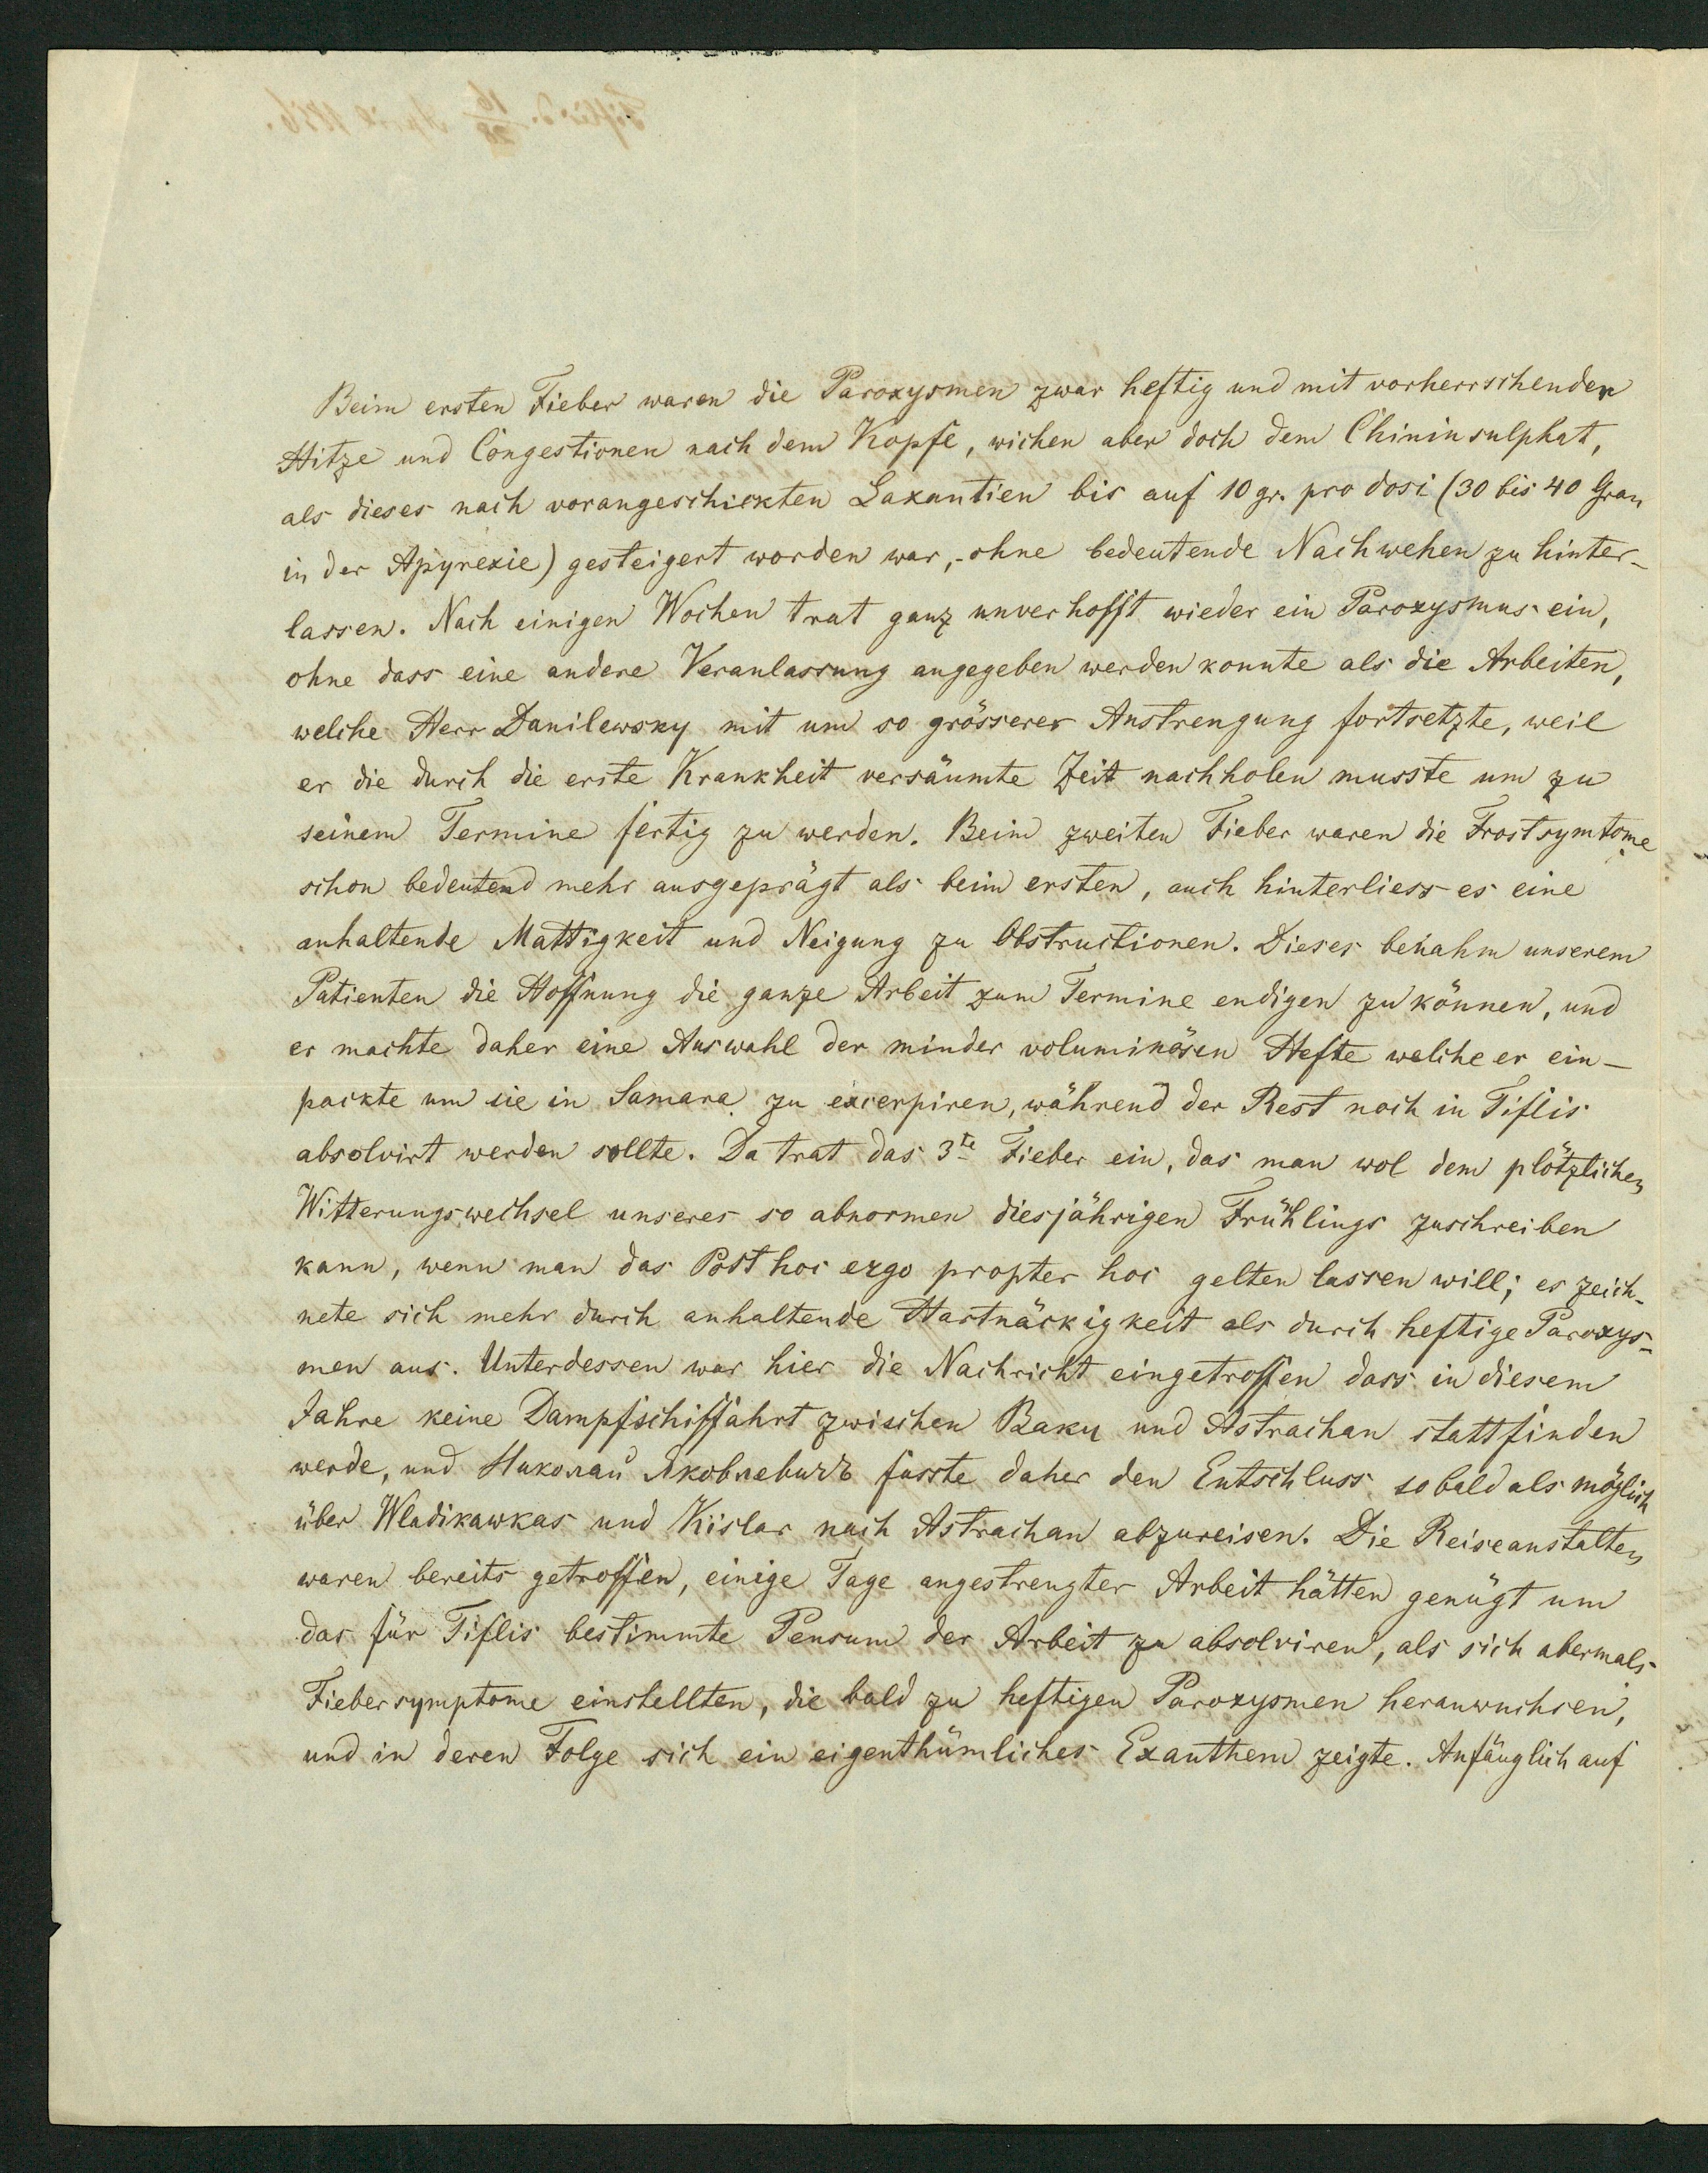 Beim ersten Fieber waren die Paroxysmen zwar heftig und mit vorherrschender
Hitze und Congestionen nach dem Kopfe, wichen aber doch dem Chininsulphat,
als dieses nach vorangeschickten Laxantien bis auf 10 gr. pro dosi (30 bis 40 Gran
in der Apyrexie) gesteigert worden war, - ohne bedeutende Nachwehen zu hinter-
lassen. Nach einigen Wochen trat ganz unverhofft wieder ein Paroxysmus ein,
ohne dass eine andere Veranlassung angegeben werden konnte als die Arbeiten,
welche Herr Danilewsky mit um so grösserer Anstrengung fortsetzte, weil
er die durch die erste Krankheit versäumte Zeit nachholen musste um zu
seinem Termine fertig zu werden. Beim zweiten Fieber waren die Frostsymtome
schon bedeutend mehr ausgeprägt als beim ersten, auch hinterliess es eine
anhaltende Mattigkeit und Neigung zu Obstructionen. Dieses benahm unserem
Patienten die Hoffnung die ganze Arbeit zum Termine endigen zu können, und
er machte daher eine Auswahl der minder voluminösen Hefte welche er ein-
packte um sie in Samara zu excerpiren, während der Rest noch in Tiflis
absolvirt werden sollte. Da trat das 3te Fieber ein, das man wol dem plötzlichen
Witterungswechsel unseres so abnormen diesjährigen Frühlings zuschreiben
kann, wenn man das Post hoc ergo propter hoc gelten lassen will; es zeich-
nete sich mehr durch anhaltende Hartnäckigkeit als durch heftige Paroxys-
men aus. Unterdessen war hier die Nachricht eingetroffen dass in diesem
Jahre keine Dampfschiffahrt zwischen Baku und Astrachan stattfinden
werde, und Николай Яковлевичъ fasste daher den Entschluss sobald als möglich
über Wladikawkas und Kislar nach Astrachan abzureisen. Die Reiseanstalten
waren bereits getroffen, einige Tage angestrengter Arbeit hätten genügt um
das für Tiflis bestimmte Pensum der Arbeit zu absolviren, als sich abermals
Fiebersymptome einstellten, die bald zu heftigen Paroxysmen heranwuchsen,
und in deren Folge sich ein eigenthümliches Exanthem zeigte. Anfänglich auf